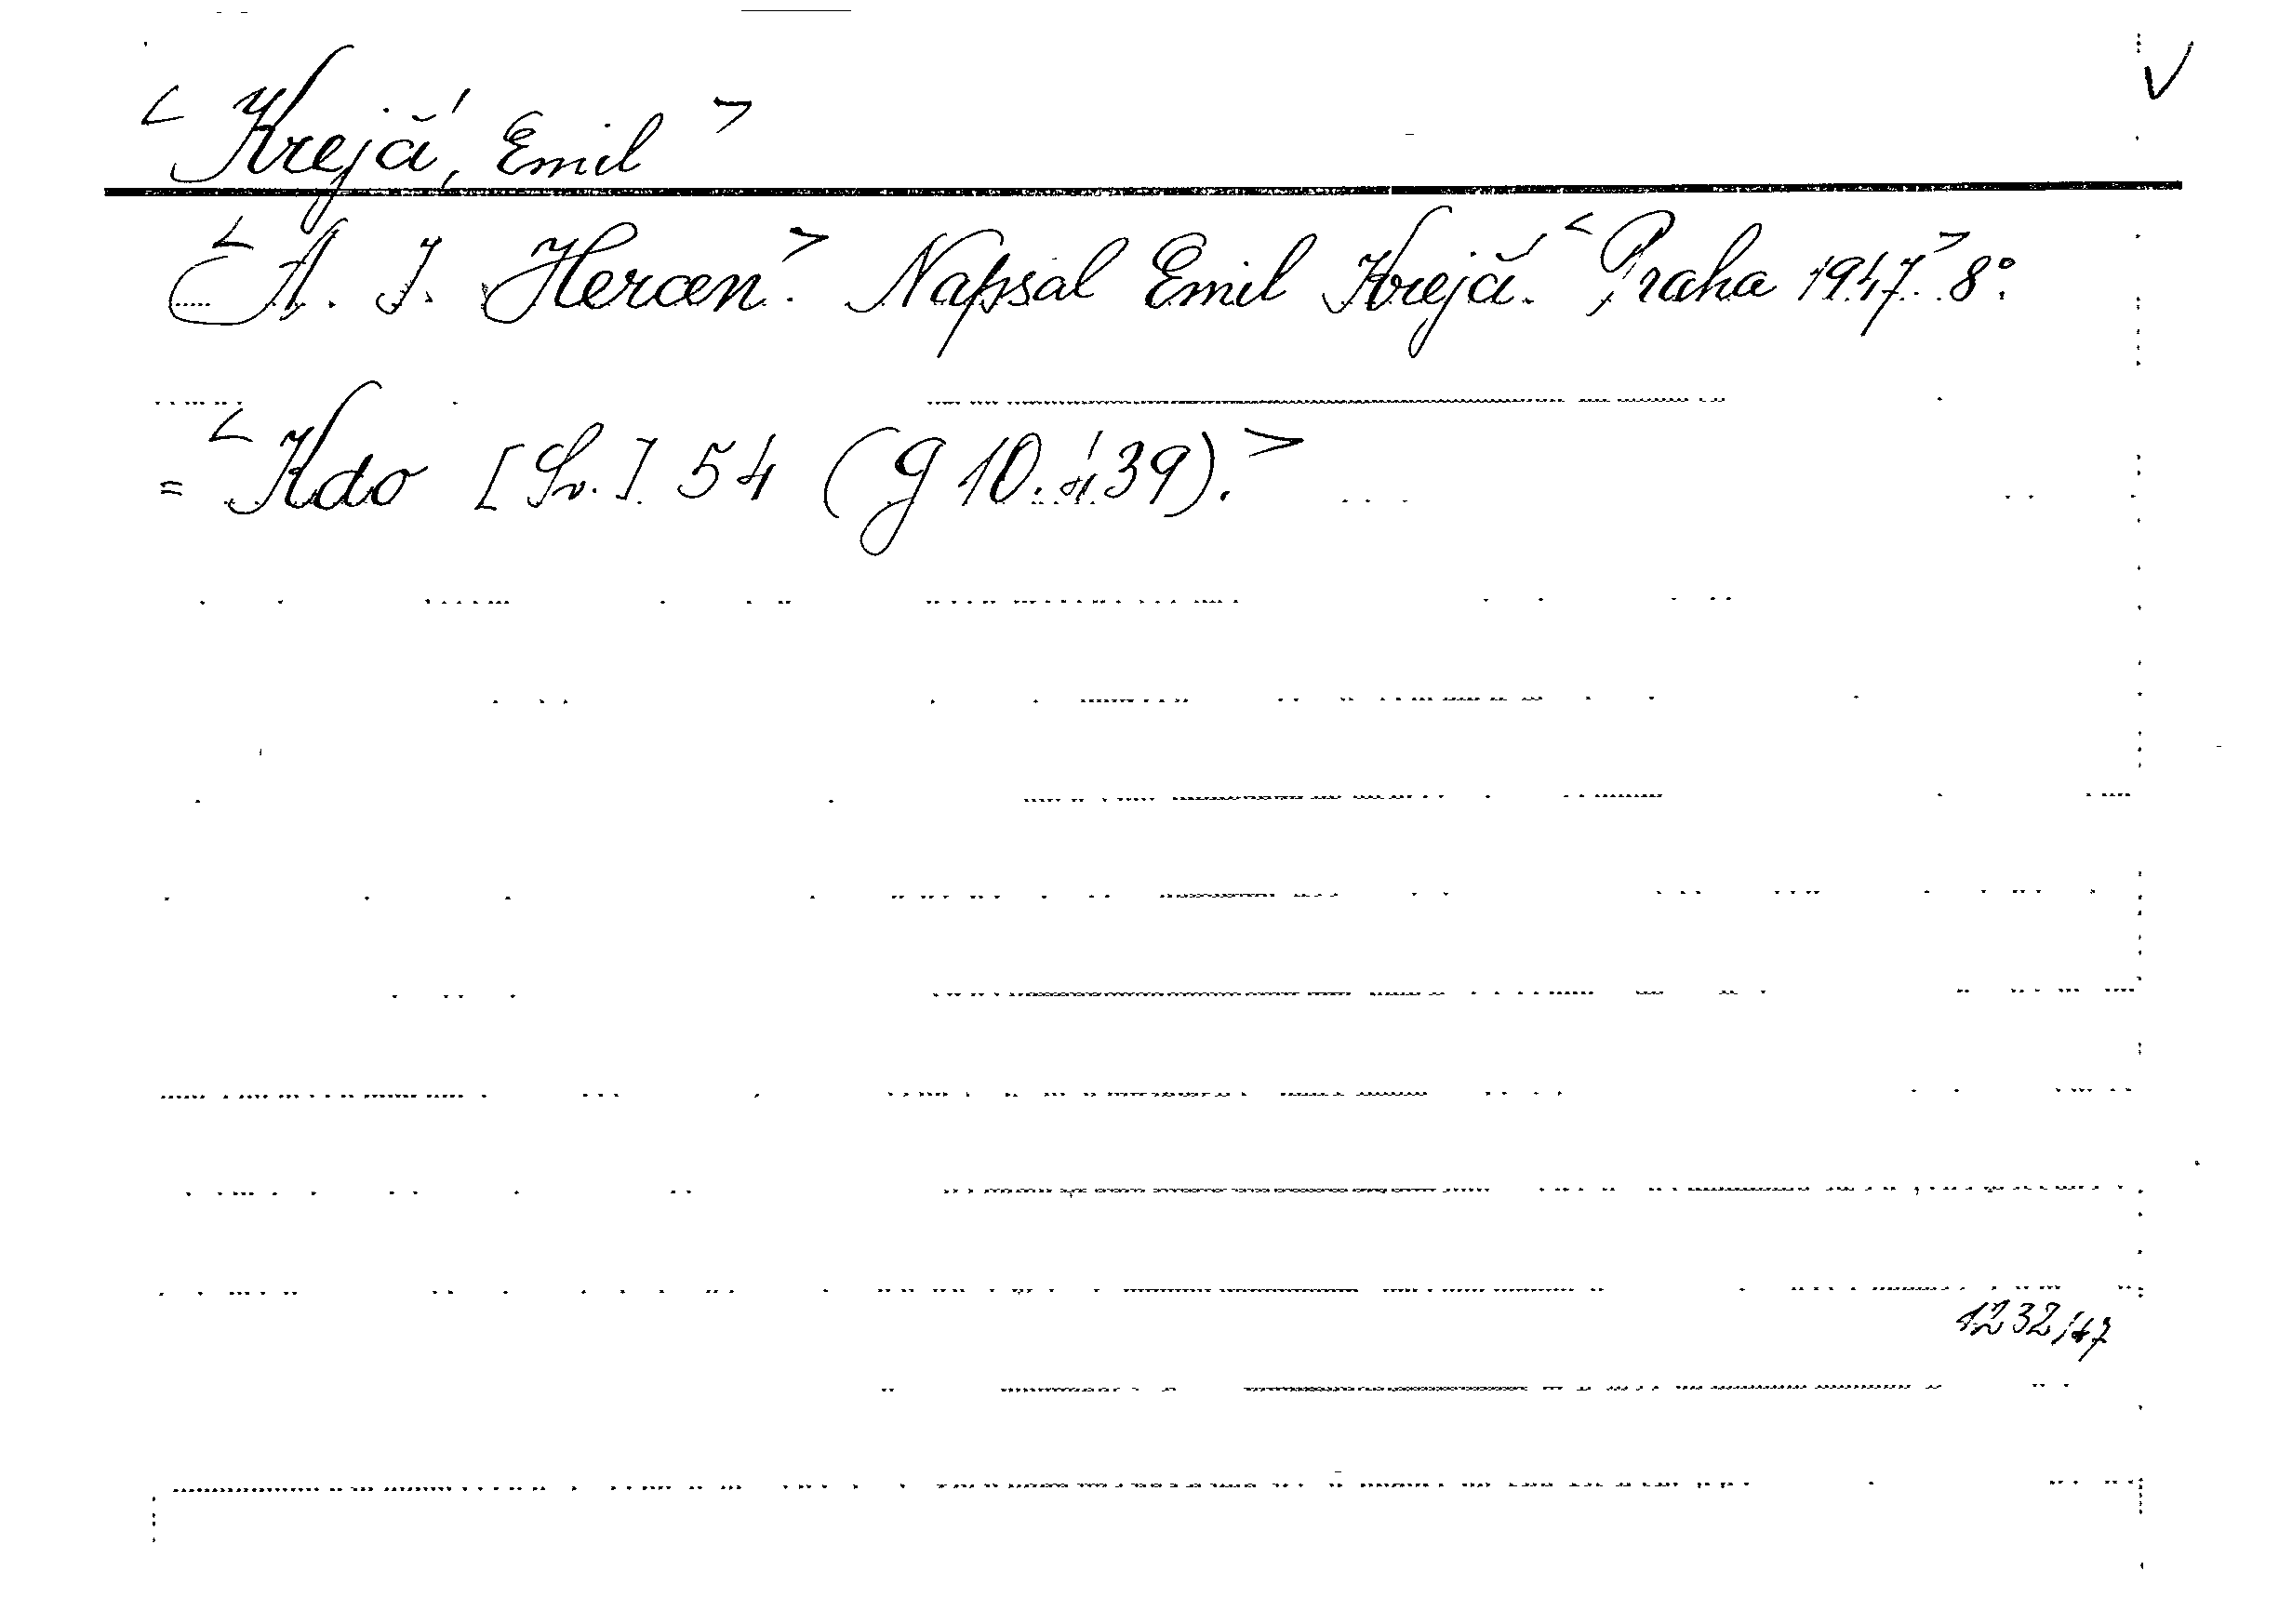 < Krejčí, Emil > V
< A. I. Hercen. > Napsal Emil Krejčí. < Praha 1947. > 8°.
= < Kdo [Sv.] 54 (g 10. í 39). >
1232/47